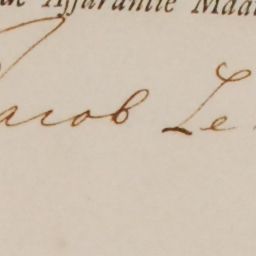 de Assurantie Maat
Jacob Le